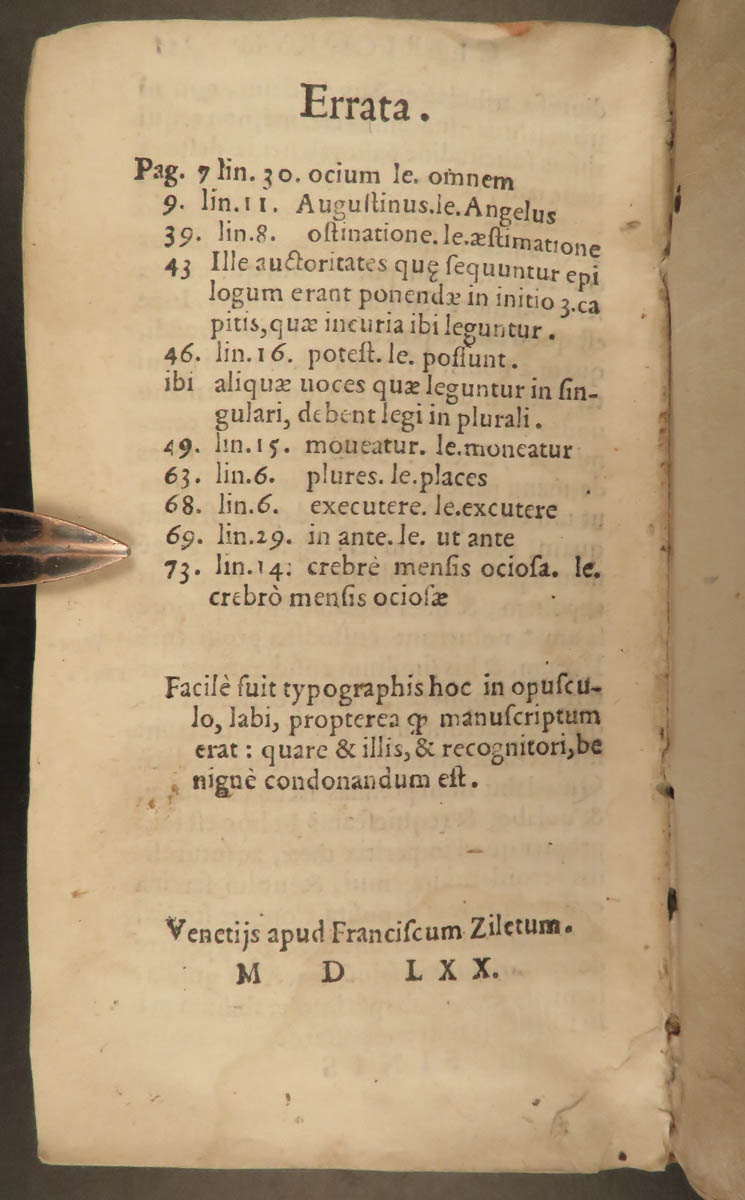 Errata.
Pag. 7 lin. 30. ocium le. omnem
9. lin. 11. Auguſtinus.le.Angelus
39. lin.8. oſtinatione.le.æſtimatione
43 Ille auctoritates quę ſequuntur epi
logum erant ponendæ in initio 3.ca
pitis,quæ incuria ibi leguntur.
46. lin.16. poteſt. le. poſſunt.
ibi aliquæ uoces quæ leguntur in ſin-
gulari, debent legi in plurali.
49. lin.15. moueatur. le.moneatur
63. lin.6. plures. le.places
68. lin.6. executere. le.excutere
69. lin.29. in ante. le. ut ante
73. lin.14: crebrè menſis ocioſa. le.
crebrò menſis ocioſæ
Facilè fuit typographis hoc in opuſcu-
lo, labi, propterea ꝙ manuſcriptum
erat: quare & illis, & recognitori, be
nignè condonandum eſt.
Venetijs apud Franciſcum Ziletum.
M D LXX.